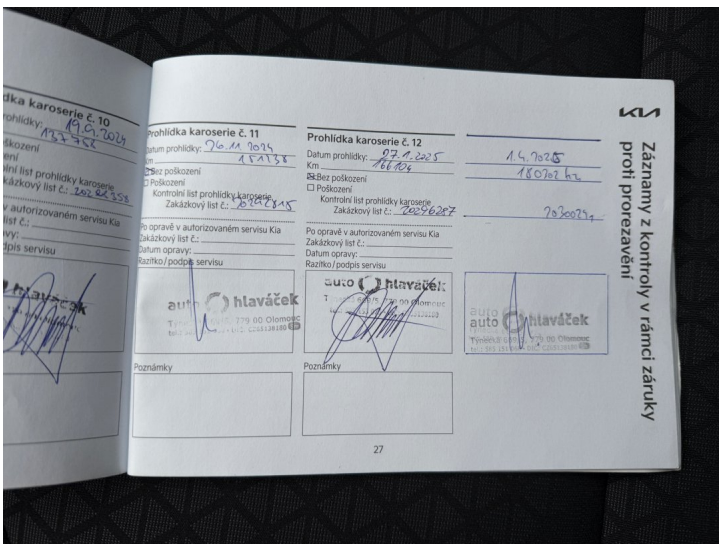 KIA
Záznamy z kontroly v rámci záruky
proti prorezavění
dka karoserie č. 10
rohlídky: 19.9.2024
137756
škození
ení
olní list prohlídky karoserie
kázkový list č.:
v autorizovaném servisu Kia
list č.:
vy:
dpis servisu
hlaváček
Prohlídka karoserie č. 11
Datum prohlídky: 26.11.2024
Km 151138
Bez poškození
Poškození
Kontrolní list prohlídky karoserie
Zakázkový list č.: 20292815
Po opravě v autorizovaném servisu Kia
Zakázkový list č.:
Datum opravy:
Razítko/podpis servisu
auto hlaváček
779 00 Olomouc
Poznámky
Prohlídka karoserie č. 12
Datum prohlídky: 27.1.2025
Km 166104
Bez poškození
Poškození
Kontrolní list prohlídky karoserie
Zakázkový list č.: 20296287
Po opravě v autorizovaném servisu Kia
Zakázkový list č.:
Datum opravy:
Razítko/podpis servisu
auto hlaváček
779 00 Olomouc
Poznámky
1.4.2025
180702 km
auto
auto hlaváček
779 00 Olomouc
27